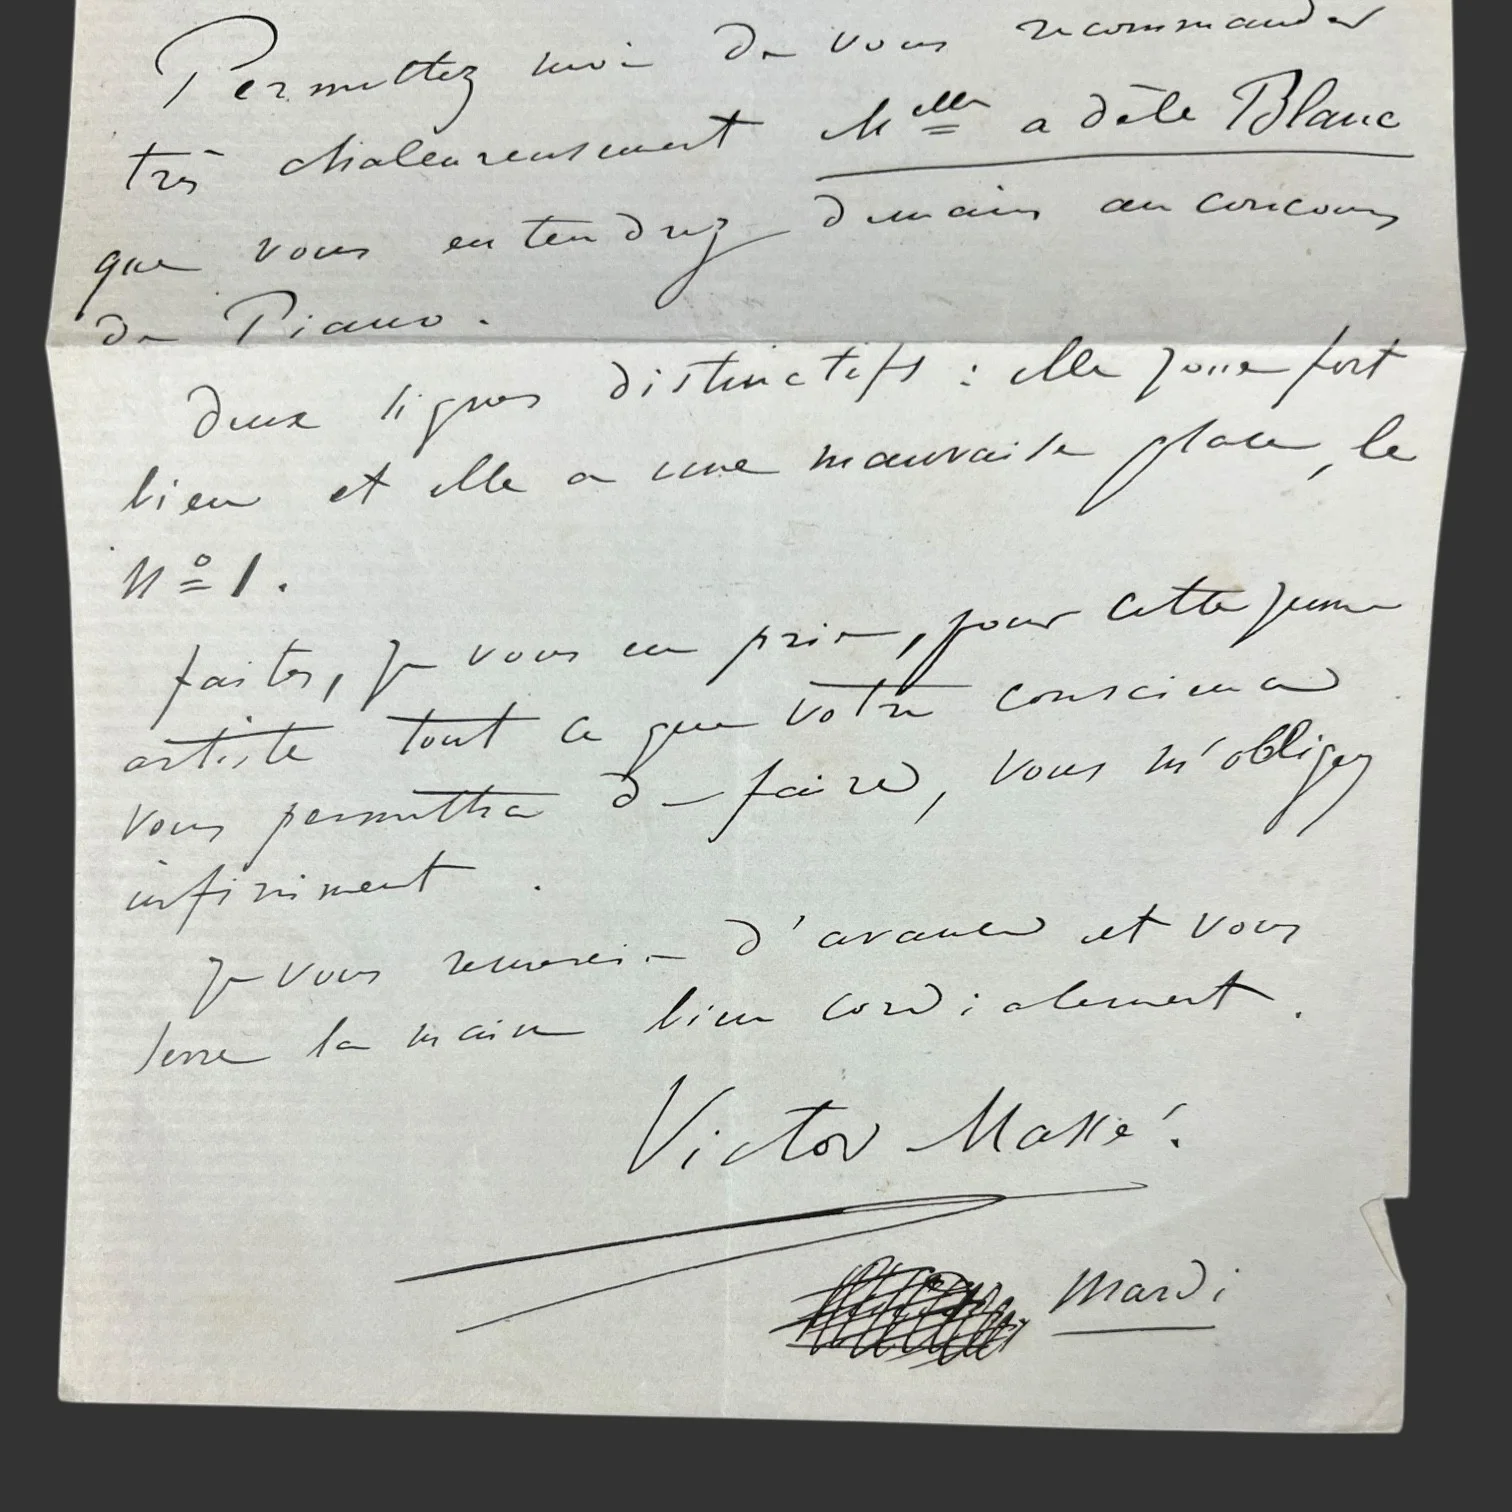 Permettez moi de vous recommander
très chaleureusement Melle adèle Blanc
que vous entendrez demain au concours
de Piano.
deux signes distinctifs : elle joue fort
bien et elle a une mauvaise place, le
No 1.
faites, je vous en prie, pour cette jeune
artiste tout ce que votre conscience
vous permettra de faire, vous m'obligez
infiniment.
je vous remercie d'avance et vous
serre la main bien cordialement.
Victor Massé.
mardi